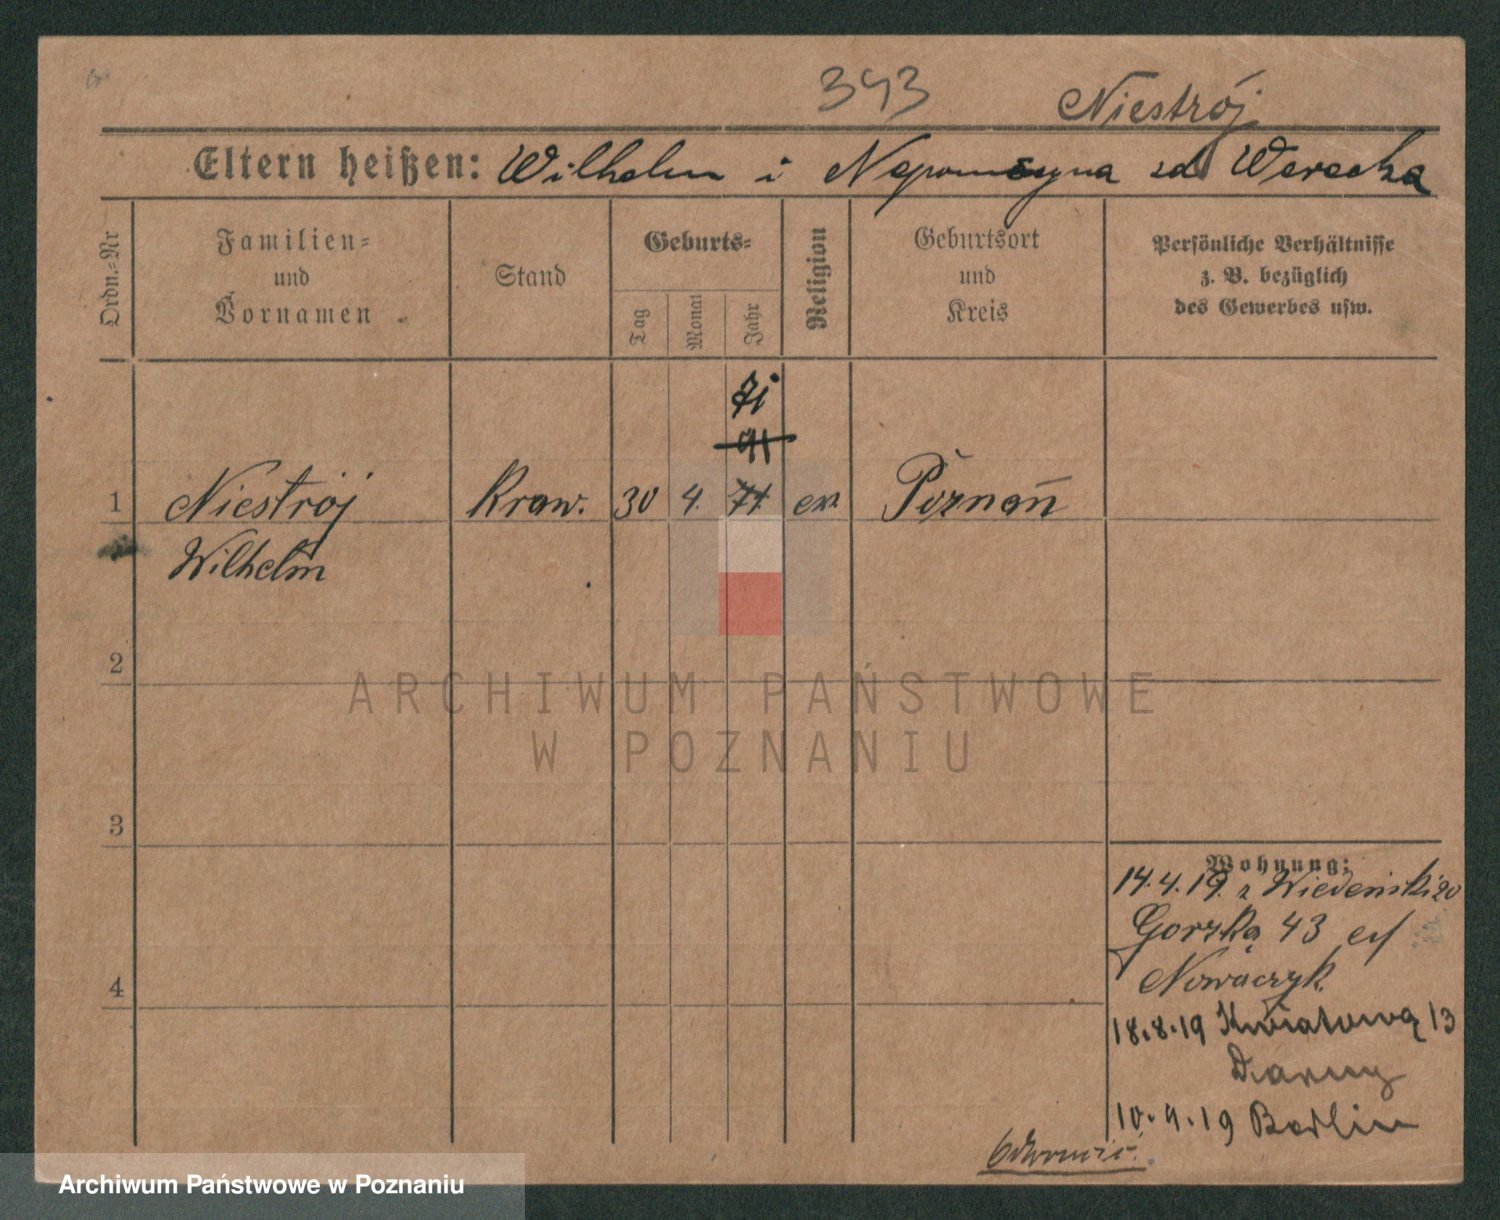 343 Niestrój
Eltern heißen: Wilhelm i Nepomcyna zd Werecka
Ordn.-Nr
Familien-
und
Vornamen
Stand
Geburts-
Tag
Monat
Jahr
Religion
Geburtsort
und
Kreis
Persönliche Verhältnisse
z. B. bezüglich
des Gewerbes usw.
71
91
1 Niestrój Kraw. 30 4. 71 ew. Poznań
Wilhelm
2
ARCHIWUM PAŃSTWOWE
W POZNANIU
3
4
Wohnung:
14.4.19. z Wiedeński 20
Gorzką 43
Nowaczyk
18.8.19 Kwiatową 13
10.9.19 Berlin
Archiwum Państwowe w Poznaniu